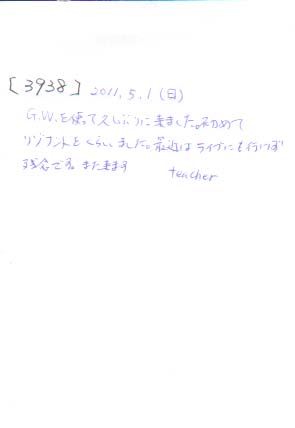 [3938] 2011.5.1(日)
G.W.を使って久しぶりに来ました。初めて
リゾフントをくらいました。最近はライブにも行けず
残念です。また来ます
teacher